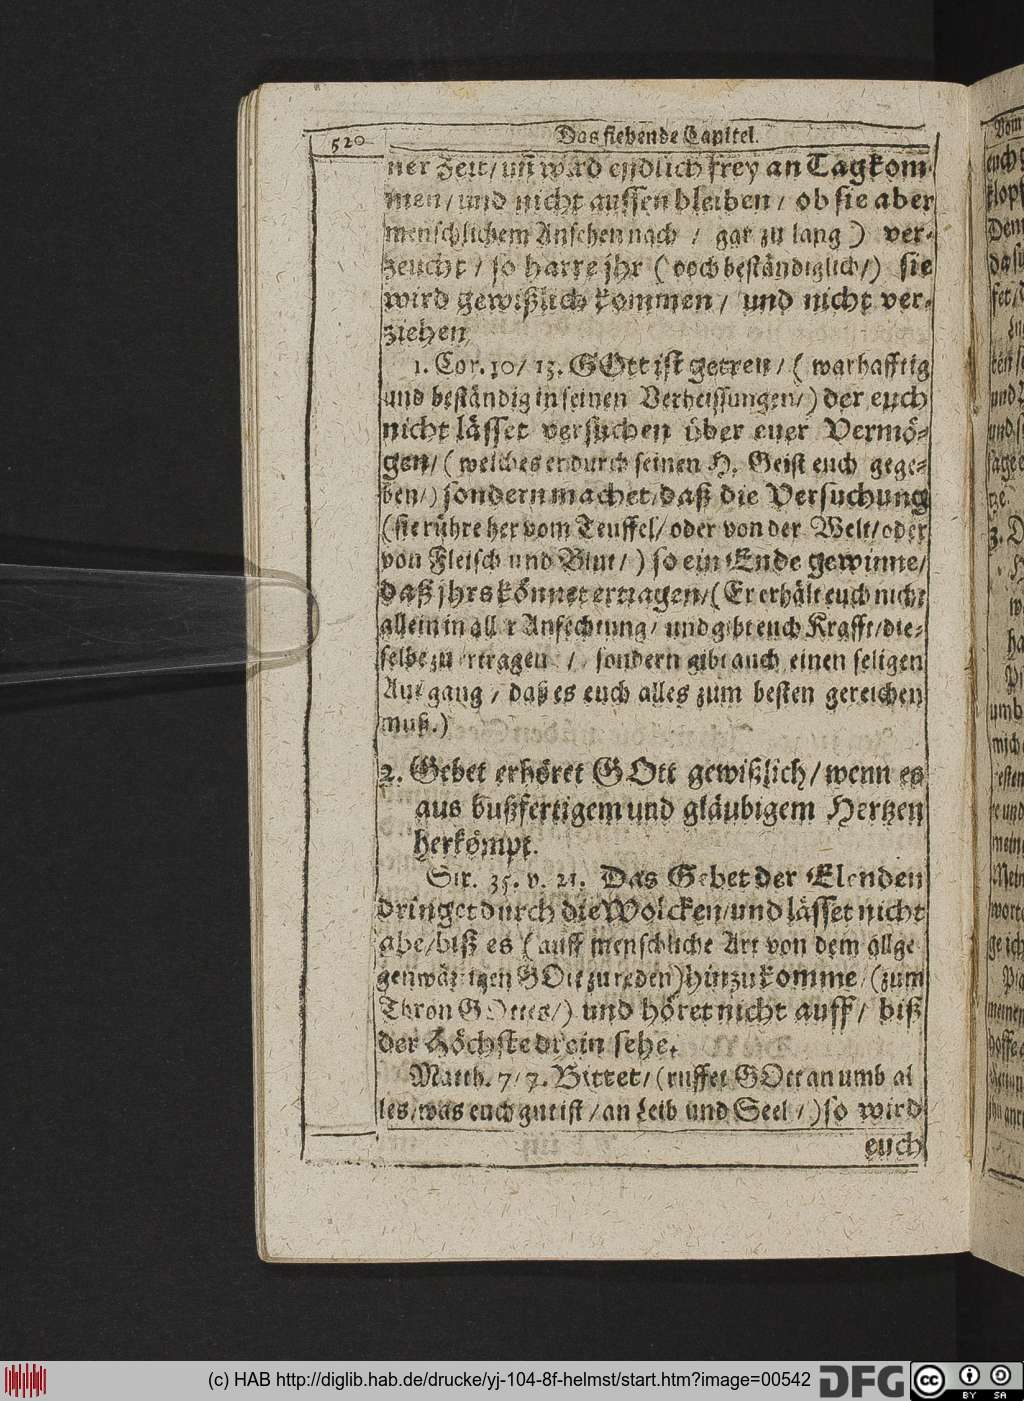 520
Das siebende Capitel.
ner Zeit/ uñ wird endlich frey an Tag kom-
men/ und nicht aussen bleiben/ ob sie aber
menschlichem Ansehen nach / gar zu lang ) ver-
zeucht / so harre jhr ( doch beständiglich/) sie
wird gewißlich kommen/ und nicht ver-
ziehen
1. Cor. 10/ 13. GOtt ist getreu/ ( warhafftig
und beständig in seinen Verheissungen/) der euch
nicht lässet versuchen über euer Vermö-
gen/ ( welches er durch seinen H. Geist euch gege-
ben/) sondern machet/ daß die Versuchung
(sie rühre her vom Teuffel/ oder von der Welt/ oder
von Fleisch und Blut/ ) so ein Ende gewinne/
daß jhrs könnet ertragen/( Er erhält euch nicht
allein in aller Anfechtung/ und gibt euch Krafft/ die-
selbe zu ertragen / sondern gibt auch einen seligen
Außgang / daß es euch alles zum besten gereichen
muß.)
2. Gebet erhöret GOtt gewißlich/ wenn es
aus bußfertigem und gläubigem Hertzen
herkömpt.
Sir. 35. v. 21. Das Gebet der Elenden
dringet durch die Wolcken/ und lässet nicht
abe/ biß es ( auff menschliche Art von dem allge
genwärtigen GOtt zu reden) hinzu komme/ (zum
Thron GOttes/) und höret nicht auff/ biß
der Höchste drein sehe.
Matth. 7/ 7. Bittet/ (ruffet GOtt an umb al
les/ was euch gut ist / an Leib und Seel / ) so wird
euch
(c) HAB http://diglib.hab.de/drucke/yj-104-8f-helmst/start.htm?image=00542
DFG
cc BY SA